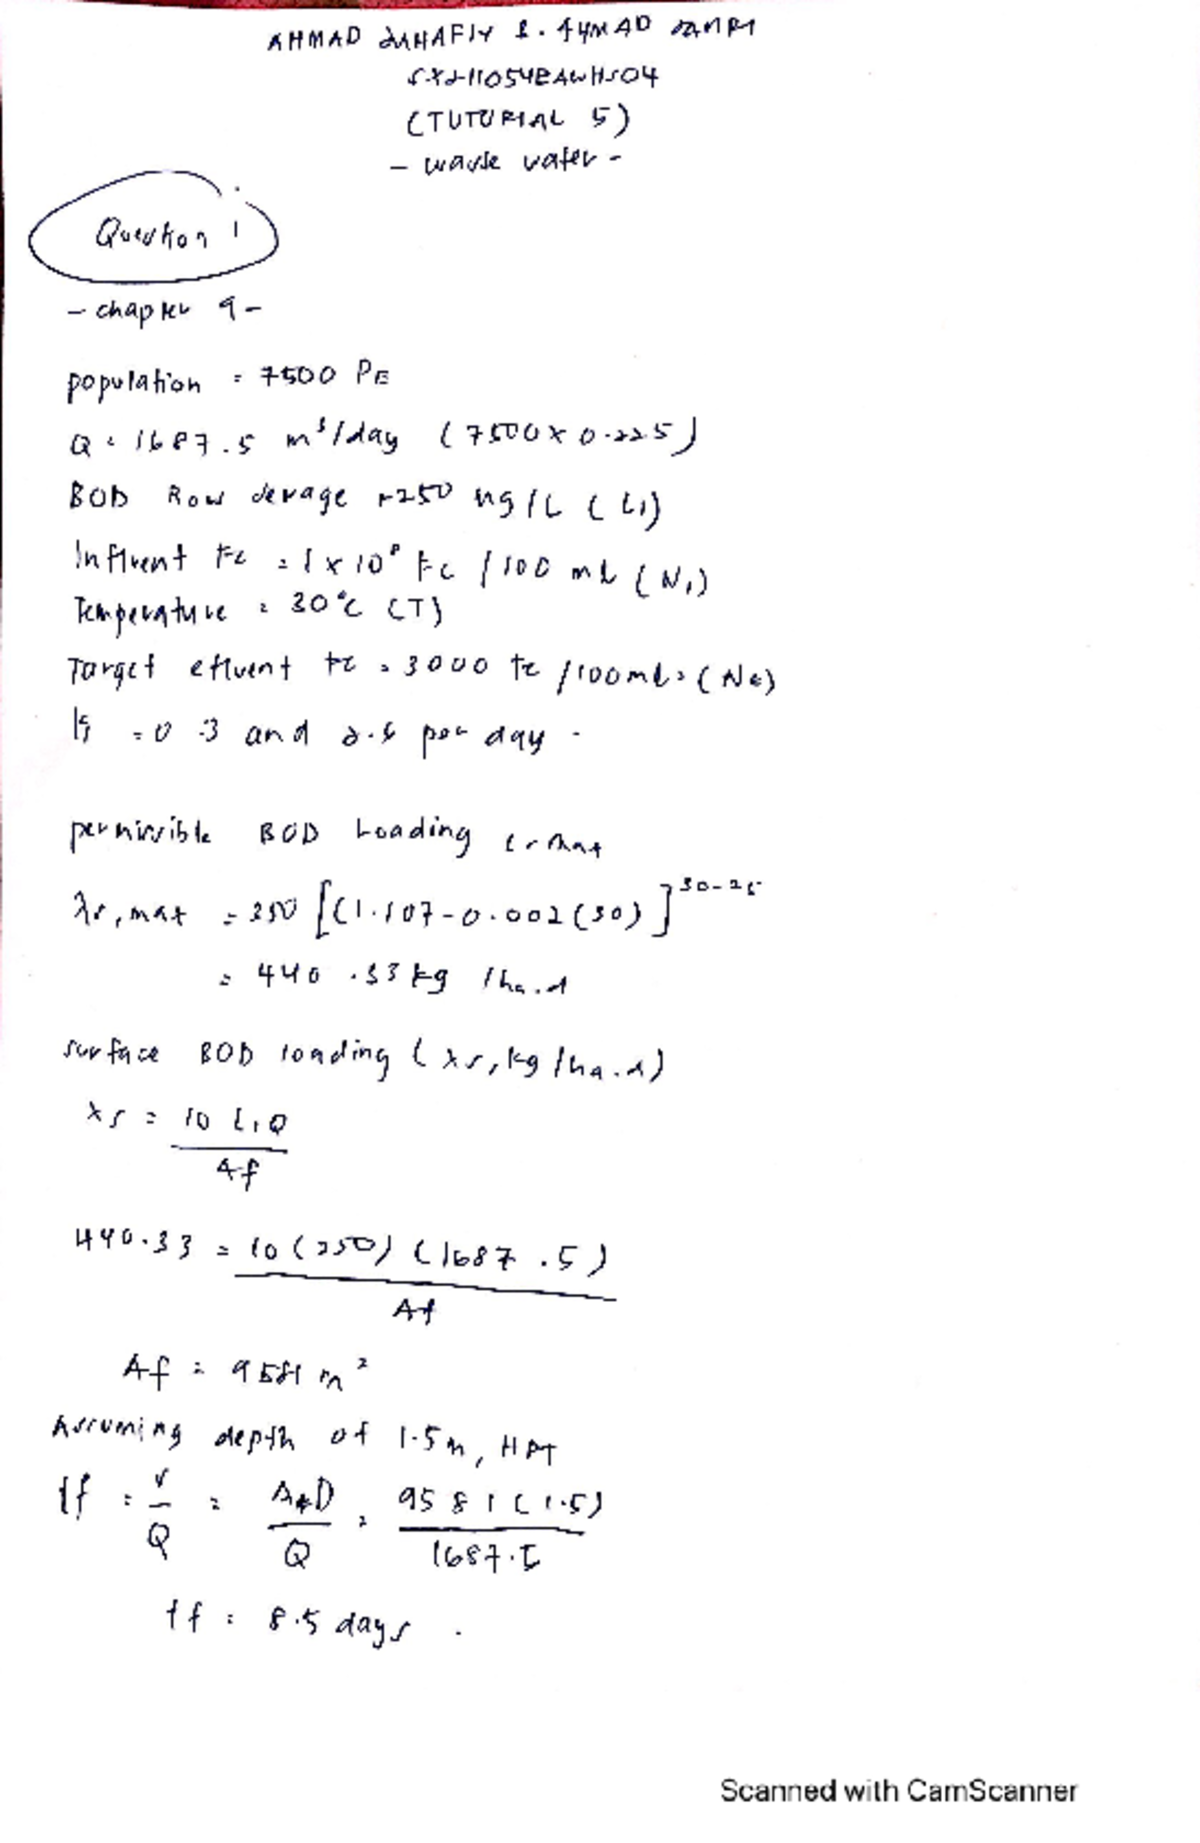 AHMAD B. AHMAD
(TUTORIAL 5)
- waste water -
Question 1
- chapter 9 -
population = 7500 PE
Q = 1687.5 m³/day (7500 x 0.225)
BOD Raw sewage = 250 mg/L (Li)
Influent Fc = 1 x 10⁸ Fc / 100 mL (Ni)
Temperature = 30°C (T)
Target effluent Fc = 3000 Fc /100mL = (Ne)
= 0.3 and 2.6 per day.
permissible BOD Loading
λs, max = 350 [(1.107-0.002(30)]³⁰⁻²⁵
= 440.33 kg /ha.d
surface BOD loading (λs, kg /ha.d)
λs = 10 Li Q
Af
440.33 = 10 (250) (1687.5)
Af
Af = 9581 m²
Assuming depth of 1.5m, HRT
tf = V = AfD = 9581 (1.5)
Q Q 1687.5
tf = 8.5 days.
Scanned with CamScanner